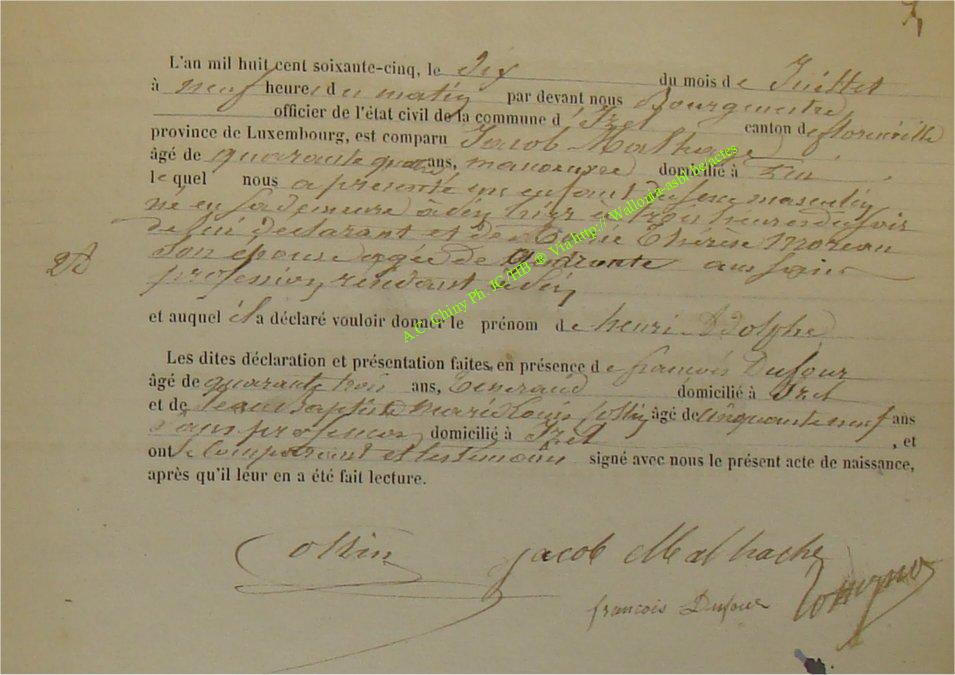 L'an mil huit cent soixante-cinq, le Dix du mois de Juillet
à neuf heures du matin par devant nous Bourgmestre
officier de l'état civil de la commune d'Izel canton de florenville
province de Luxembourg, est comparu Jacob Malhache
âgé de quarante quatre ans, manoeuvre domicilié à
lequel nous a présenté un enfant du sexe masculin
né en sa demeure à hier à trois heures du soir
de lui declarant et de Marie Thérèse Moreau
son épouse agée de quarante ans sans
profession résidant à
et auquel il a déclaré vouloir donner le prénom de henri Adolphe
Les dites déclaration et présentation faites, en présence de francois Dufour
âgé de quarante trois ans, domicilié à Izel
et de Jean Baptiste Marie Louis âgé de cinquante neuf ans
sans profession domicilié à Izel, et
ont le comparant et les temoins signé avec nous le présent acte de naissance,
après qu'il leur en a été fait lecture.
Jacob Malhache
francois Dufour
A.C. Chiny Ph. JC /HB ® Via http:// Wallonia-asbl.be/actes